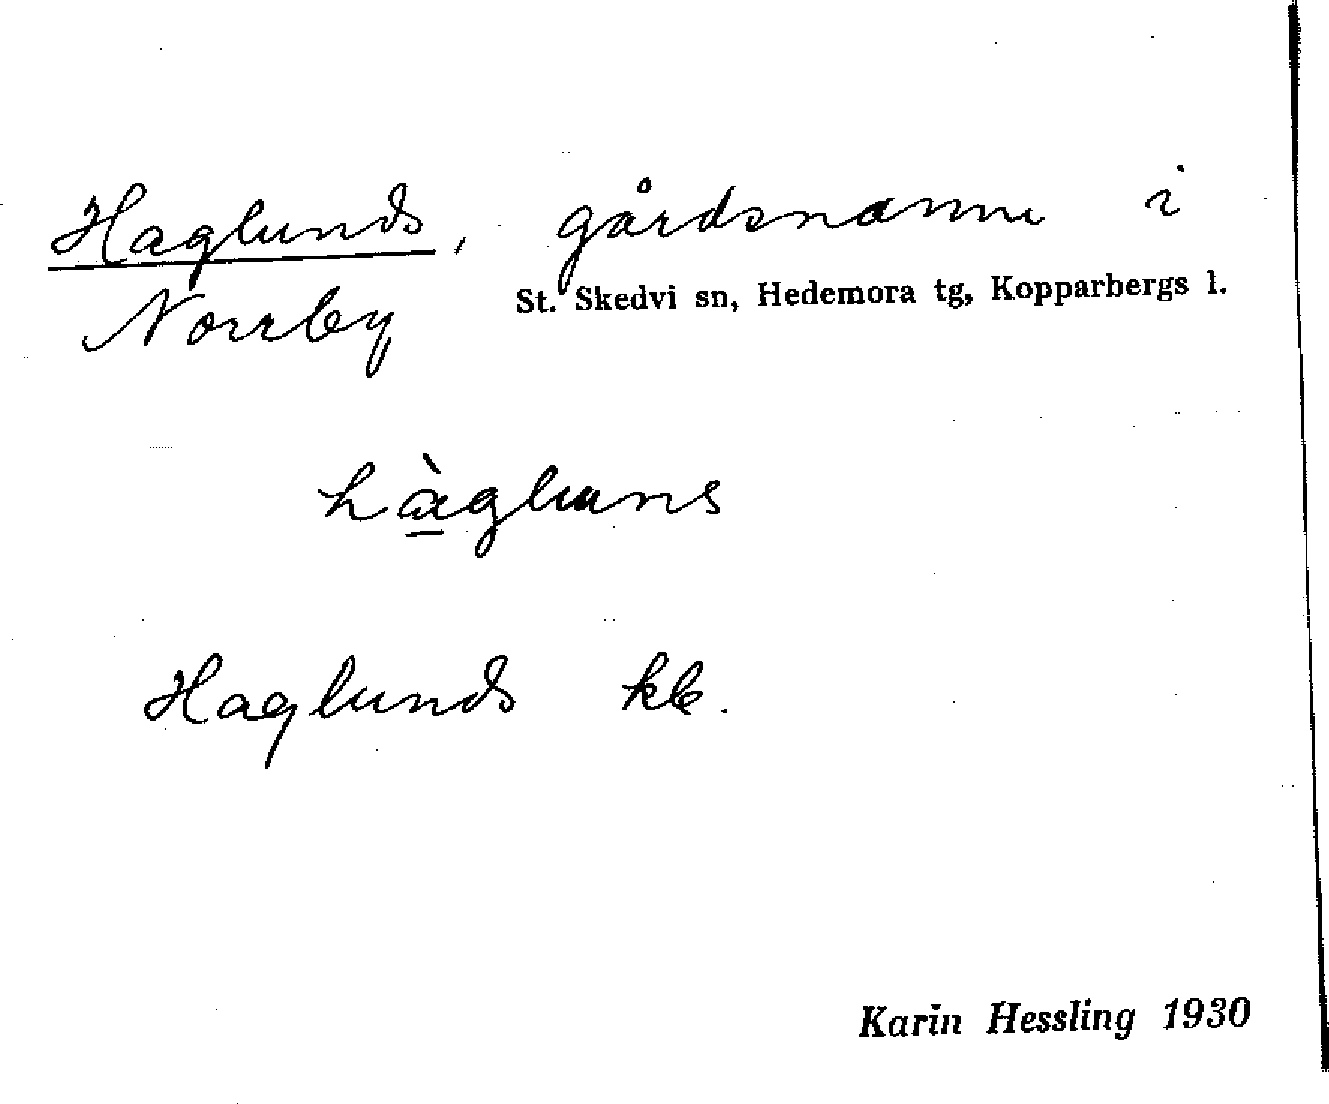 Haglunds, gårdsnamn i
Norrby St. Skedvi sn, Hedemora tg, Kopparbergs l.
hà̱gluns
Haglunds kb.
Karin Hessling 1930